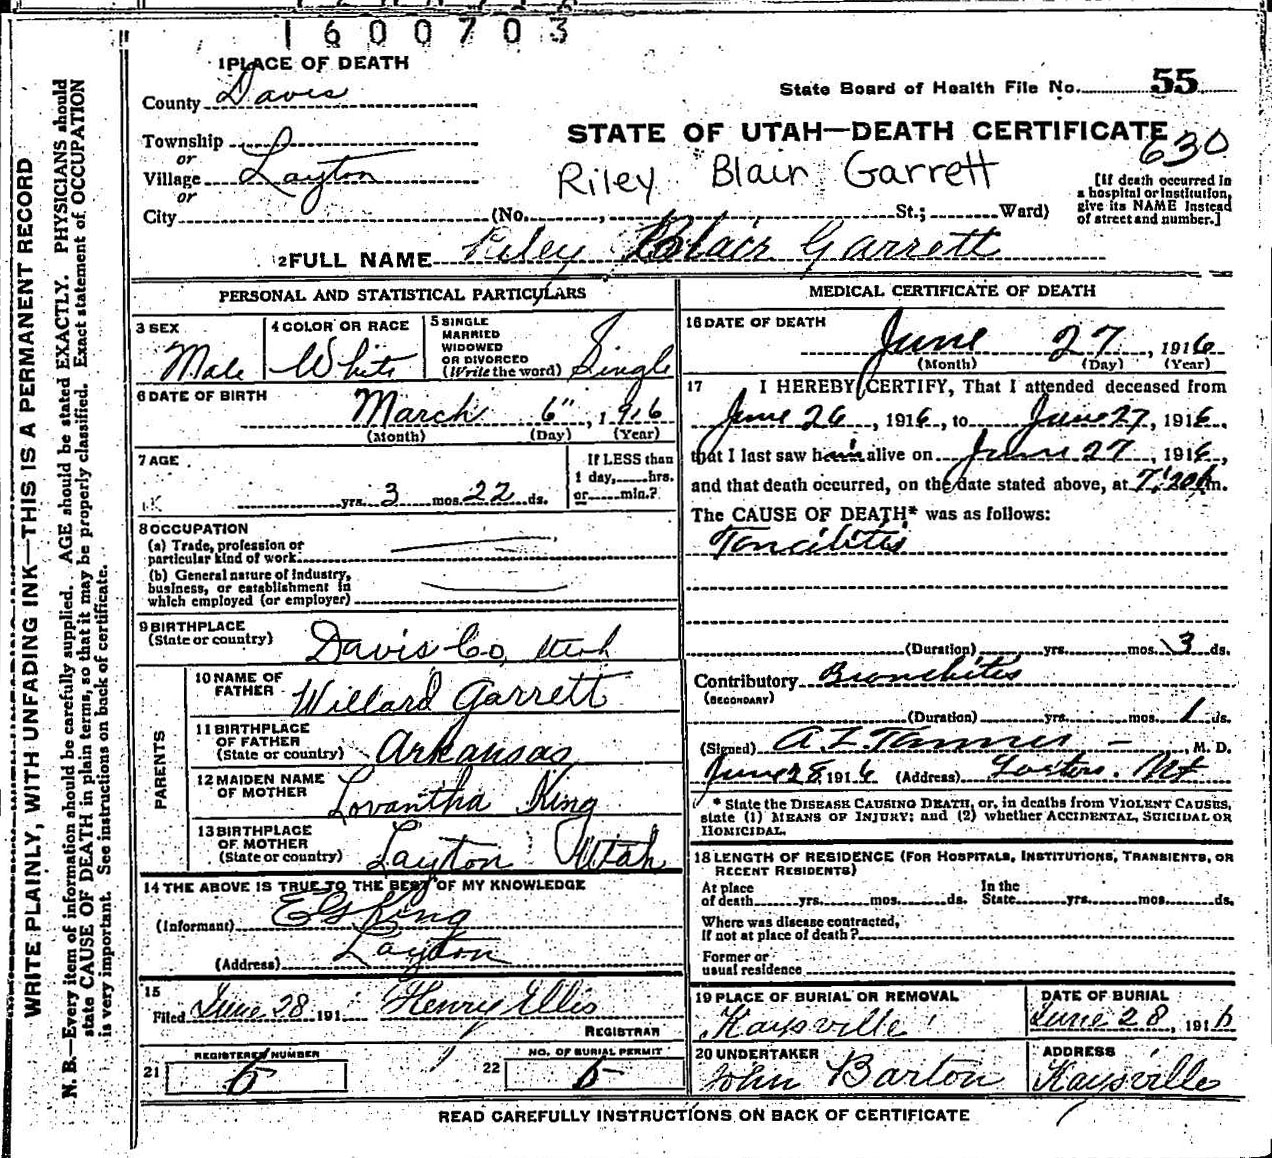 1600703
1 PLACE OF DEATH
County Davis
State Board of Health File No. 55
STATE OF UTAH—DEATH CERTIFICATE
630
Township
or
Village Layton
or
City (No. , St.; Ward)
Riley Blair Garrett
[If death occurred in
a hospital or institution,
give its NAME instead
of street and number.]
2 FULL NAME Riley Blair Garrett
PERSONAL AND STATISTICAL PARTICULARS
3 SEX
Male
4 COLOR OR RACE
White
5 SINGLE
MARRIED
WIDOWED
OR DIVORCED
(Write the word) Single
6 DATE OF BIRTH
March 6" , 1916
(Month) (Day) (Year)
7 AGE
yrs. 3 mos. 22 ds.
If LESS than
1 day, hrs.
or min.?
8 OCCUPATION
(a) Trade, profession or
particular kind of work
(b) General nature of industry,
business, or establishment in
which employed (or employer)
9 BIRTHPLACE
(State or country) Davis Co, Utah
PARENTS
10 NAME OF
FATHER Willard Garrett
11 BIRTHPLACE
OF FATHER
(State or country) Arkansas
12 MAIDEN NAME
OF MOTHER Lovantha King
13 BIRTHPLACE
OF MOTHER
(State or country) Layton Utah
14 THE ABOVE IS TRUE TO THE BEST OF MY KNOWLEDGE
(Informant) King
(Address) Layton
15
Filed June 28 191 Henry Ellis
REGISTRAR
REGISTERED NUMBER
21
NO. OF BURIAL PERMIT
22
MEDICAL CERTIFICATE OF DEATH
16 DATE OF DEATH
June 27 , 1916
(Month) (Day) (Year)
17 I HEREBY CERTIFY, That I attended deceased from
June 26 , 1916, to June 27, 1916,
that I last saw him alive on June 27 , 1916,
and that death occurred, on the date stated above, at 7:20 m.
The CAUSE OF DEATH* was as follows:
Toncilitis
(Duration) yrs. mos. 3 ds.
Contributory Bronchitis
(SECONDARY)
(Duration) yrs. mos. 1 ds.
(Signed) , M. D.
June 28 1916 (Address)
* State the DISEASE CAUSING DEATH, or, in deaths from VIOLENT CAUSES,
state (1) MEANS OF INJURY; and (2) whether ACCIDENTAL, SUICIDAL OR
HOMICIDAL.
18 LENGTH OF RESIDENCE (FOR HOSPITALS, INSTITUTIONS, TRANSIENTS, OR
RECENT RESIDENTS)
At place
of death yrs. mos. ds.
In the
State yrs. mos. ds.
Where was disease contracted,
If not at place of death?
Former or
usual residence
19 PLACE OF BURIAL OR REMOVAL
Kaysville
DATE OF BURIAL
June 28 , 1916
20 UNDERTAKER
John Barton
ADDRESS
Kaysville
READ CAREFULLY INSTRUCTIONS ON BACK OF CERTIFICATE
WRITE PLAINLY, WITH UNFADING INK—THIS IS A PERMANENT RECORD
N. B.—Every item of information should be carefully supplied. AGE should be stated EXACTLY. PHYSICIANS should
state CAUSE OF DEATH in plain terms, so that it may be properly classified. Exact statement of OCCUPATION
is very important. See instructions on back of certificate.